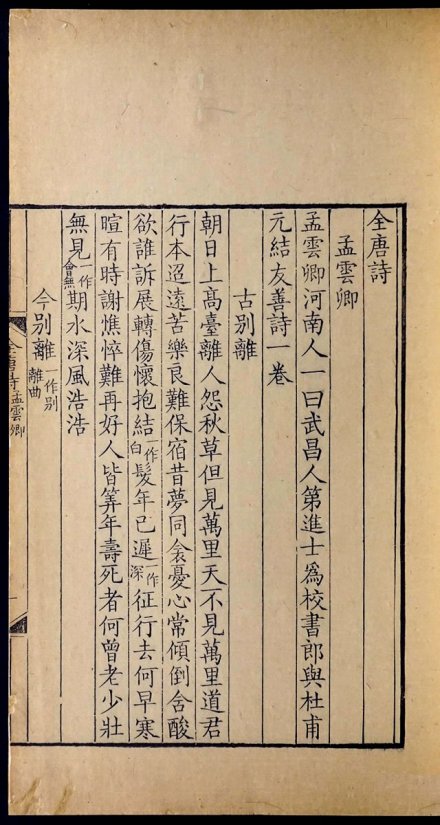 全唐詩
孟雲卿
孟雲卿河南人一曰武昌人第進士爲校書郎與杜甫
元結友善詩一卷
古别離
朝日上髙臺離人怨秋草但見萬里天不見萬里道君
行本迢遠苦樂良難保宿昔夢同衾憂心常傾倒含酸
欲誰訴展轉傷懷抱結一作白髮年已遲一作深征行去何早寒
暄有時謝憔悴難再好人皆筭年壽死者何曾老少壯
無見一作會無期水深風浩浩
今别離一作别離曲
全唐詩 孟雲卿
一